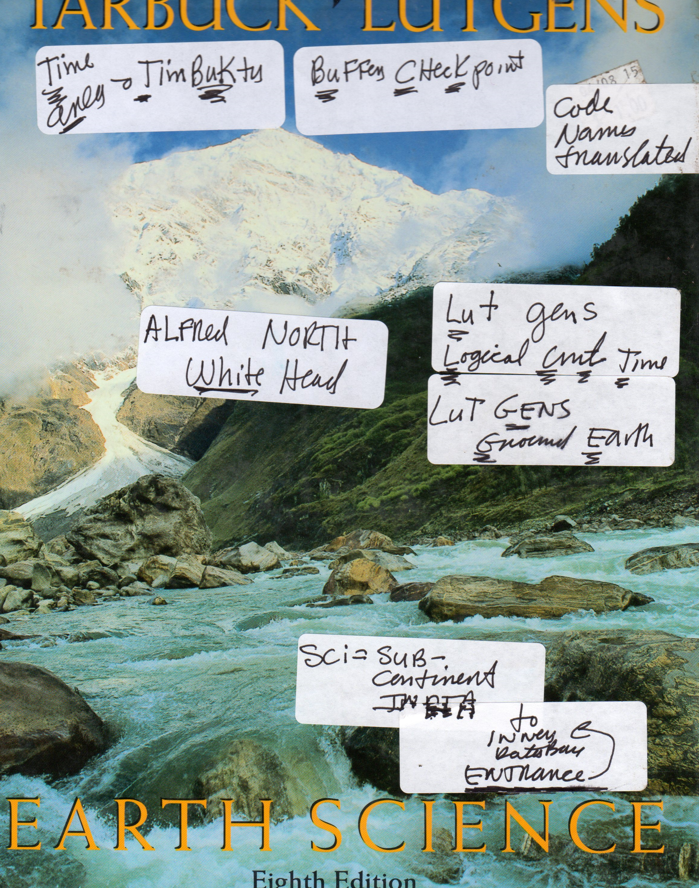 TARBUCK LUTGENS
Time
Area → TimBuKtu
BuFFer CHecKpoint
108 15
Code
Names
translated
ALFRed NORTH
White Head
Lut gens
Logical Time
LUT GENS
Ground Earth
SCi = SUB-
Continent
INDIA
to
INNer
EnTRance
EARTH SCIENCE
Eighth Edition